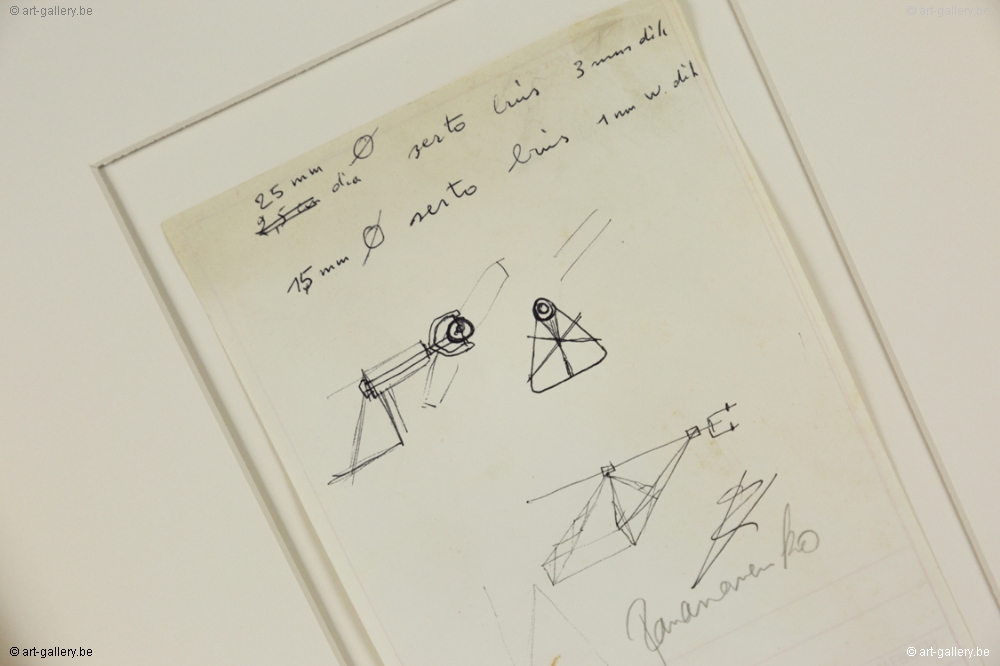 © art-gallery.be
© art-gallery.be
25 mm Ø serto buis 3 mm dik
2,5 cm dia
15 mm Ø serto buis 1 mm w. dik
Panamarenko
© art-gallery.be
© art-gallery.be